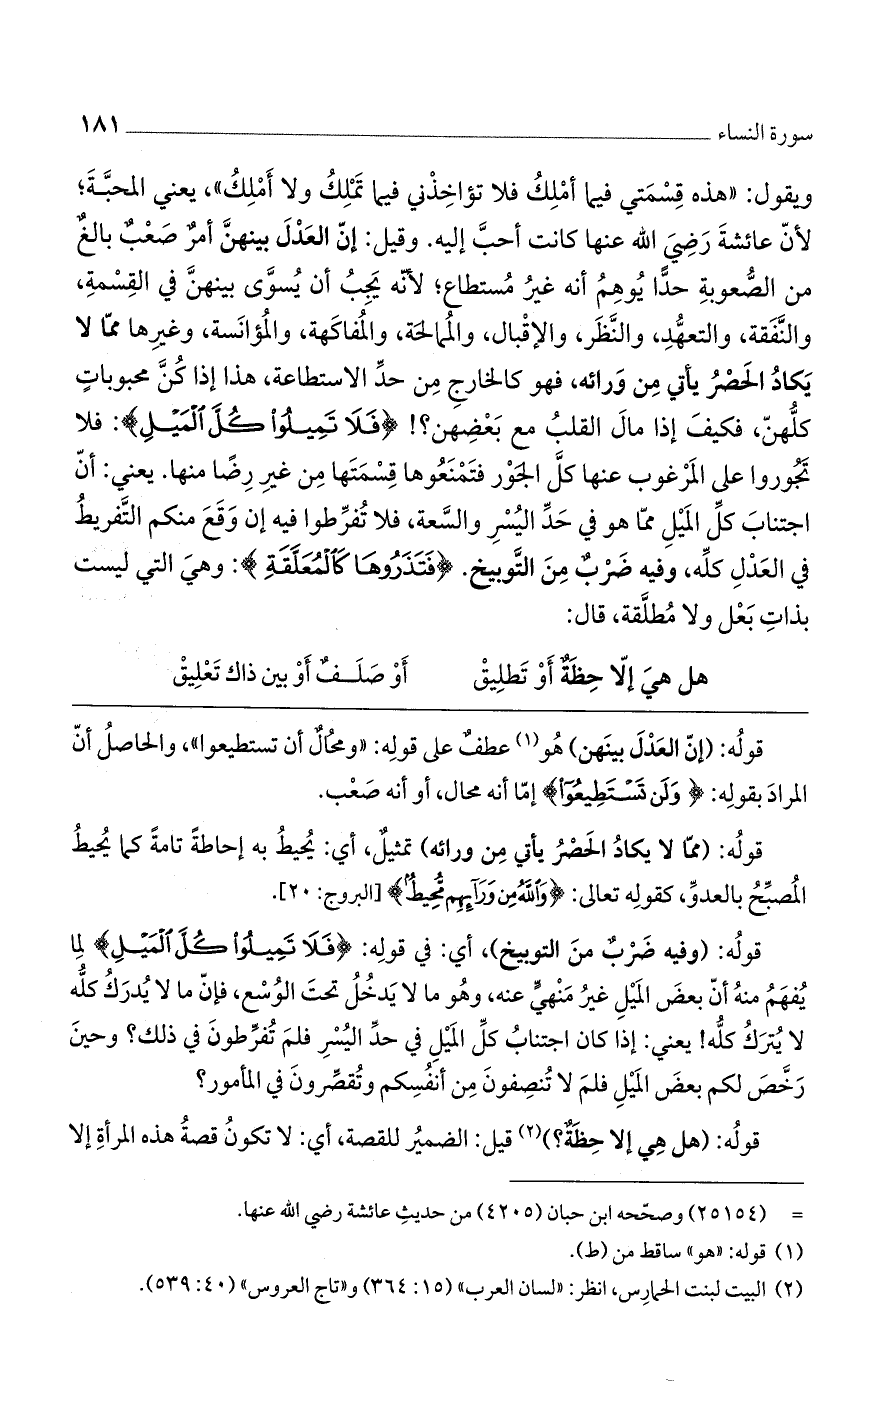 سورة النساء ١٨١
ويقول: «هذه قِسْمَتي فيما أمْلِكُ فلا تؤاخِذْني فيما تَمْلِكُ ولا أَمْلِكُ»، يعني المحبَّةَ؛
لأنّ عائشةَ رَضِيَ الله عنها كانت أحبَّ إليه. وقيل: إنّ العَدْلَ بينهنَّ أمرٌ صَعْبٌ بالغٌ
من الصُّعوبةِ حدًّا يُوهِمُ أنه غيرُ مُستطاع؛ لأنّه يَجِبُ أن يُسوَّى بينهنَّ في القِسْمةِ،
والنَّفَقة، والتعهُّدِ، والنَّظَر، والإقْبال، والمُمالَحة، والمُفاكَهة، والمُؤانَسة، وغيرِها ممّا لا
يَكادُ الحَصْرُ يأتي مِن وَرائه، فهو كالخارجِ مِن حدِّ الاستطاعة، هذا إذا كُنَّ محبوباتٍ
كلُّهنّ، فكيفَ إذا مالَ القلبُ مع بَعْضِهن؟! ﴿فَلَا تَمِيلُواْ كُلَّ ٱلْمَيْلِ﴾: فلا
تَجُوروا على المَرْغوب عنها كلَّ الجَوْر فتَمْنَعُوها قِسْمَتَها مِن غيرِ رِضًا منها. يعني: أنّ
اجتنابَ كلِّ المَيْلِ ممّا هو في حَدِّ اليُسْرِ والسَّعة، فلا تُفرِّطوا فيه إن وَقَعَ منكم التَّفريطُ
في العَدْلِ كلِّه، وفيه ضَرْبٌ مِنَ التَّوبيخ. ﴿فَتَذَرُوهَا كَٱلْمُعَلَّقَةِ﴾: وهيَ التي ليست
بذاتِ بَعْل ولا مُطلَّقة، قال:
هل هيَ إلّا حِظَةٌ أَوْ تَطلِيقْ أَوْ صَلَـفٌ أَوْ بين ذاك تَعْلِيقْ
قولُه: (إنّ العَدْلَ بينَهن) هُو(١) عطفٌ على قولِه: «ومحُالٌ أن تستطيعوا»، والحاصلُ أنّ
المرادَ بقولِه: ﴿وَلَن تَسْتَطِيعُوٓاْ﴾ إمّا أنه محال، أو أنه صَعْب.
قولُه: (ممّا لا يكادُ الحَصْرُ يأتي مِن ورائه) تمثيلٌ، أي: يُحيطُ به إحاطةً تامةً كما يُحيطُ
المُصبِّحُ بالعدوِّ، كقولِه تعالى: ﴿وَٱللَّهُ مِن وَرَآئِهِم مُّحِيطٌۢ﴾ [البروج: ٢٠].
قولُه: (وفيه ضَرْبٌ منَ التوبيخ)، أي: في قولِه: ﴿فَلَا تَمِيلُواْ كُلَّ ٱلْمَيْلِ﴾ لِما
يُفهَمُ منهُ أنّ بعضَ المَيْلِ غيرُ مَنْهيٍّ عنه، وهُو ما لا يَدخُلُ تحتَ الوُسْع، فإنّ ما لا يُدرَكُ كلُّه
لا يُترَكُ كلُّه! يعني: إذا كان اجتنابُ كلِّ المَيْلِ في حدِّ اليُسْرِ فلمَ تُفرِّطونَ في ذلك؟ وحينَ
رَخَّصَ لكم بعضَ المَيْلِ فلمَ لا تُنصِفونَ مِن أنفُسِكم وتُقصِّرونَ في المأمور؟
قولُه: (هل هِي إلا حِظَةٌ؟)(٢) قيل: الضميرُ للقصة، أي: لا تكونُ قصةُ هذه المرأةِ إلا
= (٢٥١٥٤) وصحّحه ابن حبان (٤٢٠٥) من حديثِ عائشة رضي الله عنها.
(١) قوله: «هو» ساقط من (ط).
(٢) البيت لبنت الحمارِس، انظر: «لسان العرب» (١٥: ٣٦٤) و«تاج العروس» (٤٠: ٥٣٩).